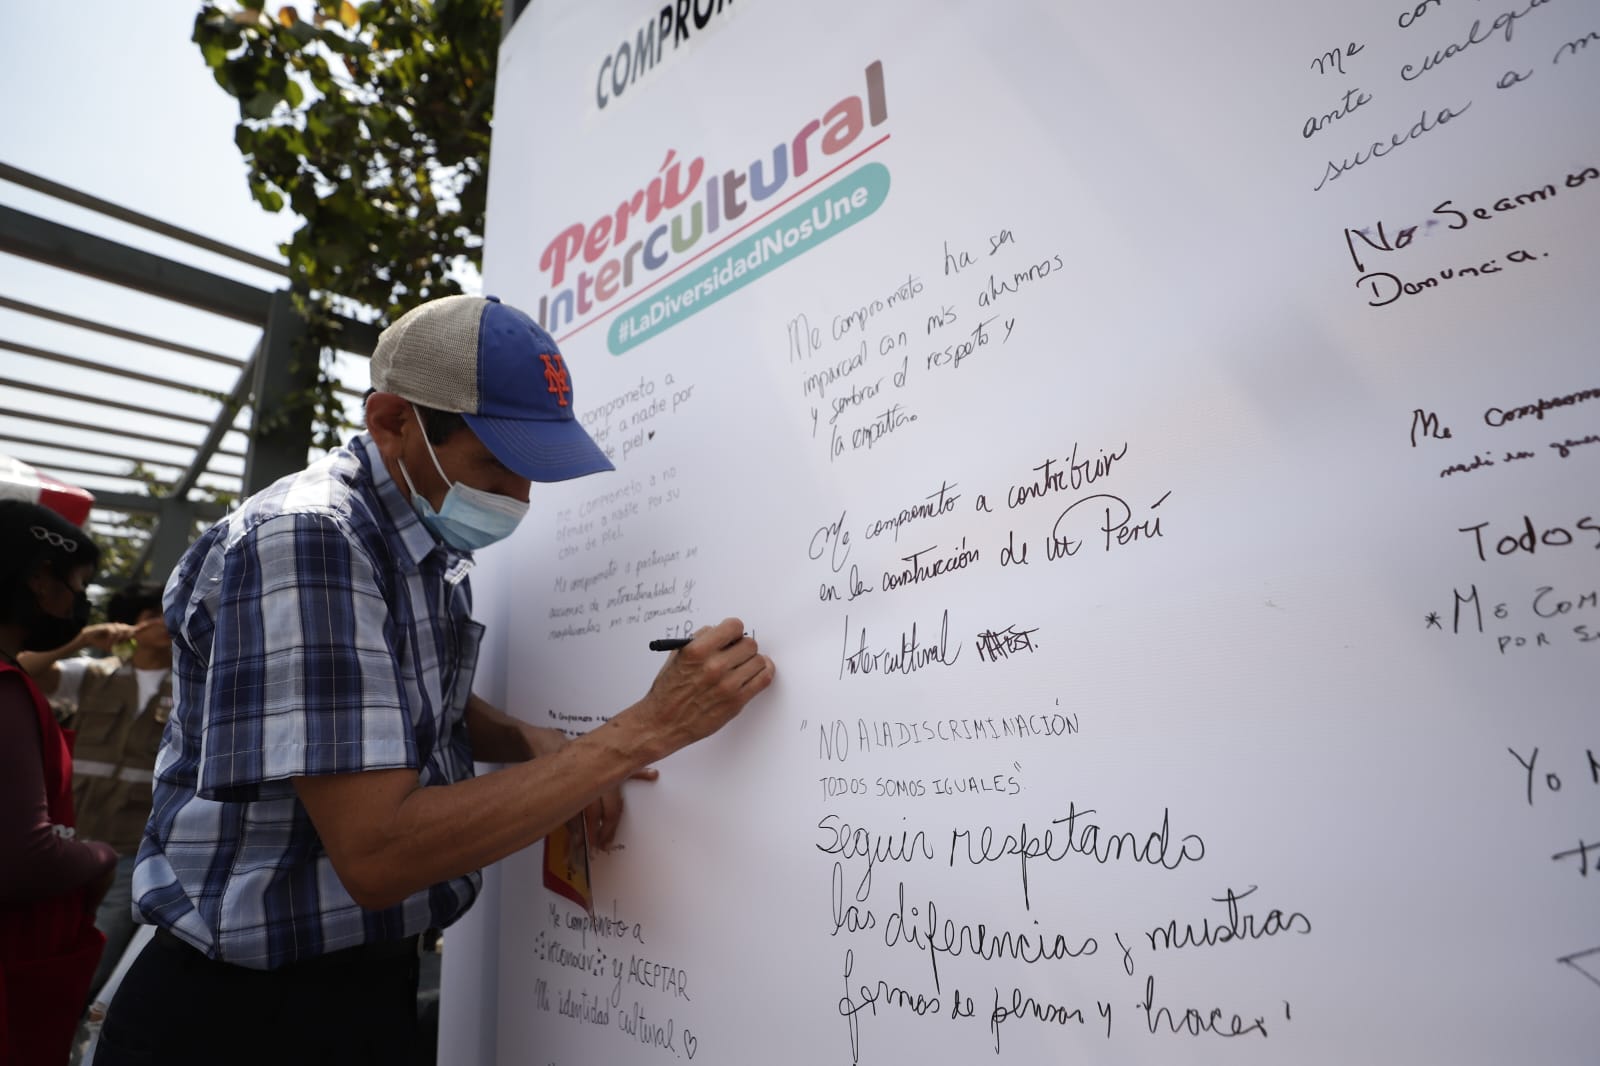 COMPROM
Perú
Intercultural
#LaDiversidadNosUne
comprometo a
der a nadie por
de piel
me comprometo a no
ofender a nadie por su
color de piel.
Me comprometo a participar en
acciones de interculturalidad y
en mi comunidad.
Me comprometo a
reconocer y ACEPTAR
mi identidad cultural.
Me comprometo ha ser
imparcial con mis alumnos
y sembrar el respeto y
la empatía.
Me comprometo a contribuir
en la construcción de un Perú
Intercultural
"NO A LA DISCRIMINACIÓN
TODOS SOMOS IGUALES"
Seguir respetando
las diferencias y nuestras
formas de pensar y hacer
me co
ante cualqu
suceda a m
No Seamos
Denuncia.
Me comprom
nadi en gener
Todos
*Me Com
POR S
Yo
NY